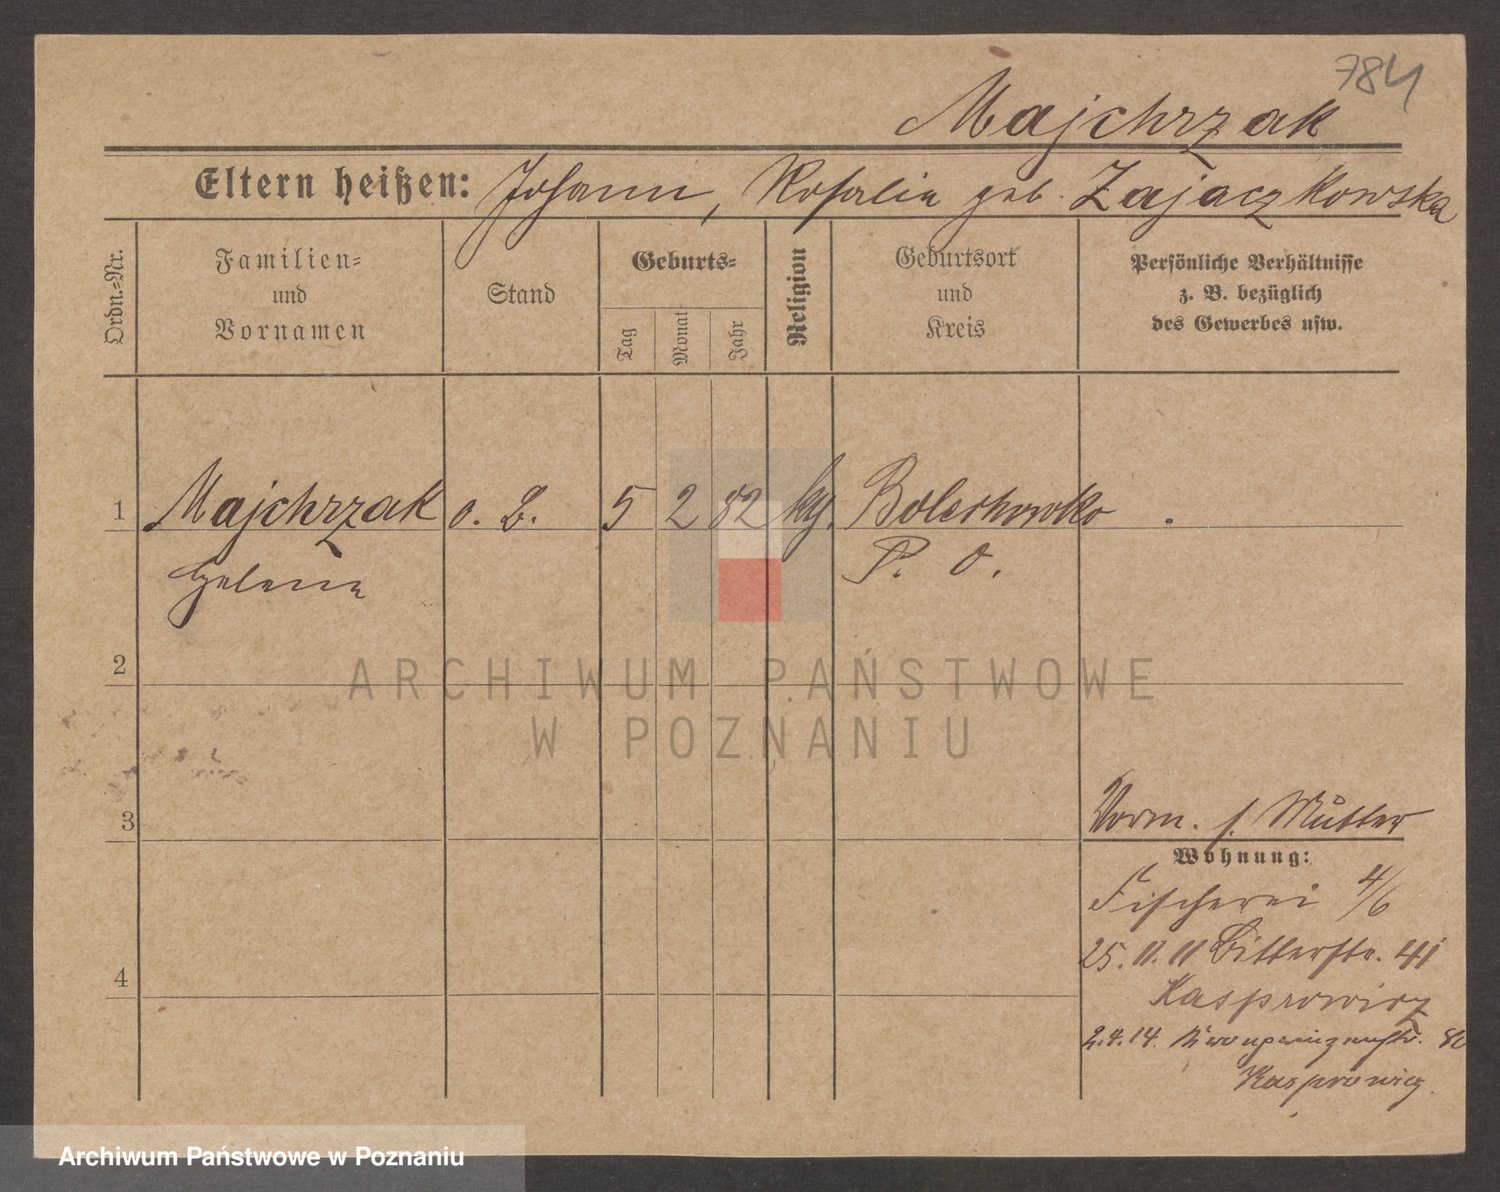 784
Majchrzak
Eltern heißen: Johann, Rosalie geb. Zajaczkowska
Ordn.-Nr.
Familien-
und
Vornamen
Stand
Geburts-
Tag
Monat
Jahr
Religion
Geburtsort
und
Kreis
Persönliche Verhältnisse
z. B. bezüglich
des Gewerbes usw.
1 Majchrzak o. B. 5 2 82 kg. Bolechowko
Helene P. O.
2
3
Vorm. s. Mutter
Wohnung:
Fischerei 4/6
25. 11. 11 Bitterstr. 41
Kasprowicz
4
2.4.14. Kronprinzenstr. 80
Kasprowicz.
ARCHIWUM PAŃSTWOWE
W POZNANIU
Archiwum Państwowe w Poznaniu